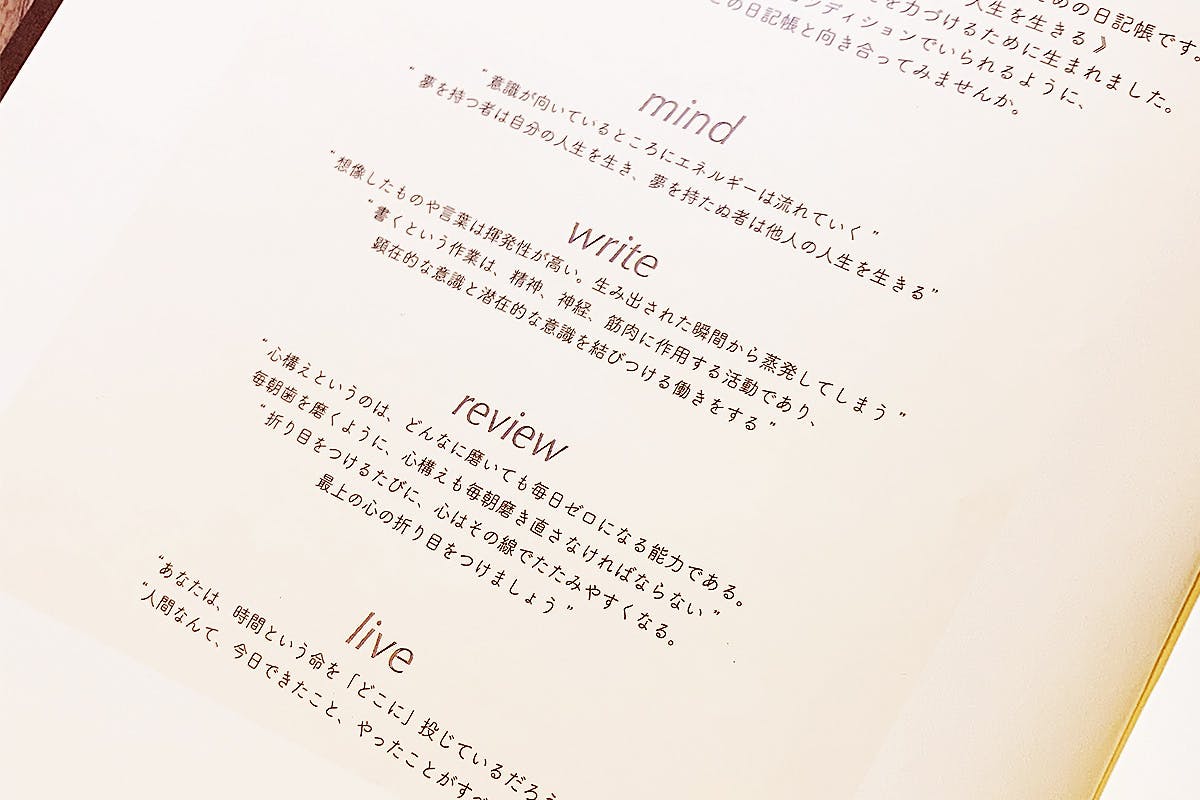 めの日記帳です。
人生を生きる 》
を力づけるために生まれました。
ンディションでいられるように、
の日記帳と向き合ってみませんか。
mind
“意識が向いているところにエネルギーは流れていく”
“夢を持つ者は自分の人生を生き、夢を持たぬ者は他人の人生を生きる”
write
“想像したものや言葉は揮発性が高い。生み出された瞬間から蒸発してしまう”
“書くという作業は、精神、神経、筋肉に作用する活動であり、
顕在的な意識と潜在的な意識を結びつける働きをする”
review
“心構えというのは、どんなに磨いても毎日ゼロになる能力である。
毎朝歯を磨くように、心構えも毎朝磨き直さなければならない”
“折り目をつけるたびに、心はその線でたたみやすくなる。
最上の心の折り目をつけましょう”
live
“あなたは、時間という命を「どこに」投じているだろ
“人間なんて、今日できたこと、やったことがすべ